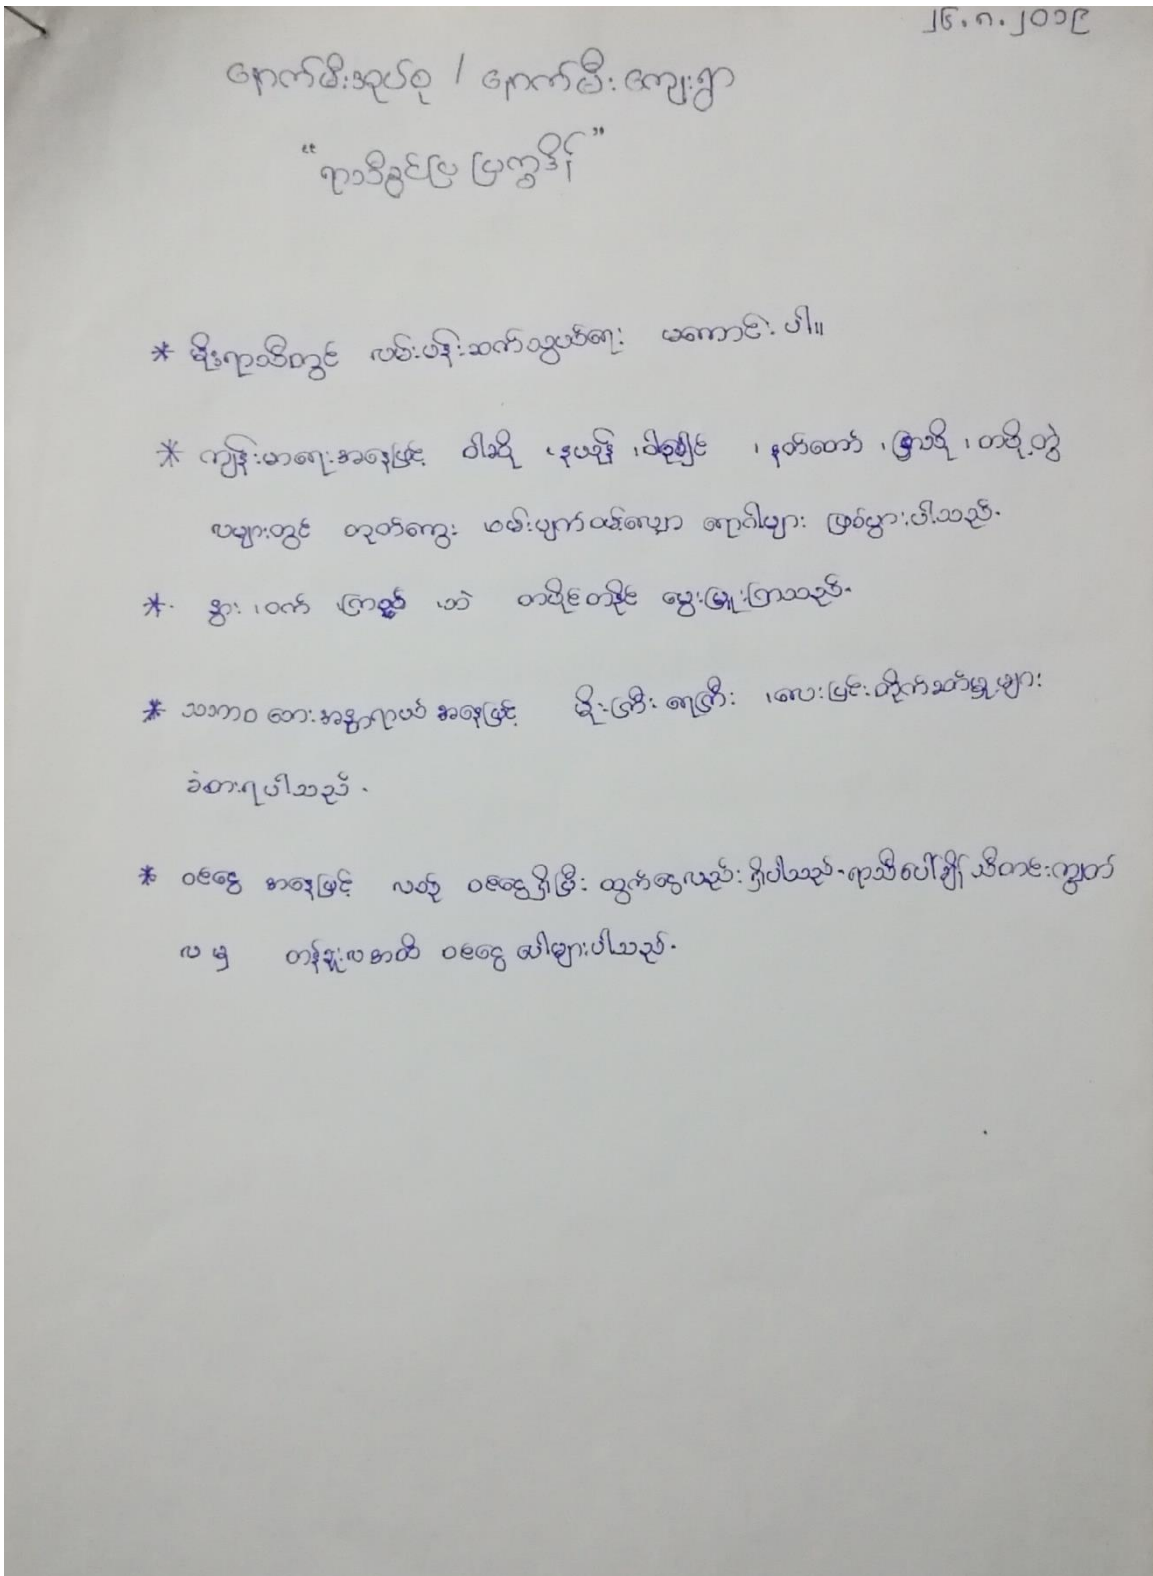 ၂၆.၈.၂၀၁၉
နောက်မီးအုပ်စု / နောက်မီးကျေးရွာ
“ရာသီခွင်ပြ ပြက္ခဒိန်”
* မိုးရာသီတွင် လမ်းပန်းဆက်သွယ်ရေး မကောင်းပါ။
* ကျန်းမာရေးအနေဖြင့် ဝါဆို ၊နယုန် ၊ဝါခေါင် ၊နတ်တော် ၊ပြာသို ၊တပို့တွဲ
လများတွင် တုတ်ကွေး ဝမ်းပျက်ဝမ်းလျှော ရောဂါများ ဖြစ်ပွားပါသည်.
* နွား ၊ဝက် ၊ကြက် ၊ဘဲ တပိုင်တနိုင် မွေးမြူကြသည်.
* သဘာဝဘေးအန္တရာယ်အနေဖြင့် မိုးကြီးရေကြီး ၊လေပြင်းတိုက်ခတ်မှုများ
ခံစားရပါသည်.
* ဝင်ငွေ အနေဖြင့် လစဉ် ဝင်ငွေရှိပြီး ထွက်ငွေလည်းရှိပါသည်.ရာသီပေါ်ချိန် သီတင်းကျွတ်
လ မှ တန်ခူးလအထိ ဝင်ငွေ ပေါများပါသည်.